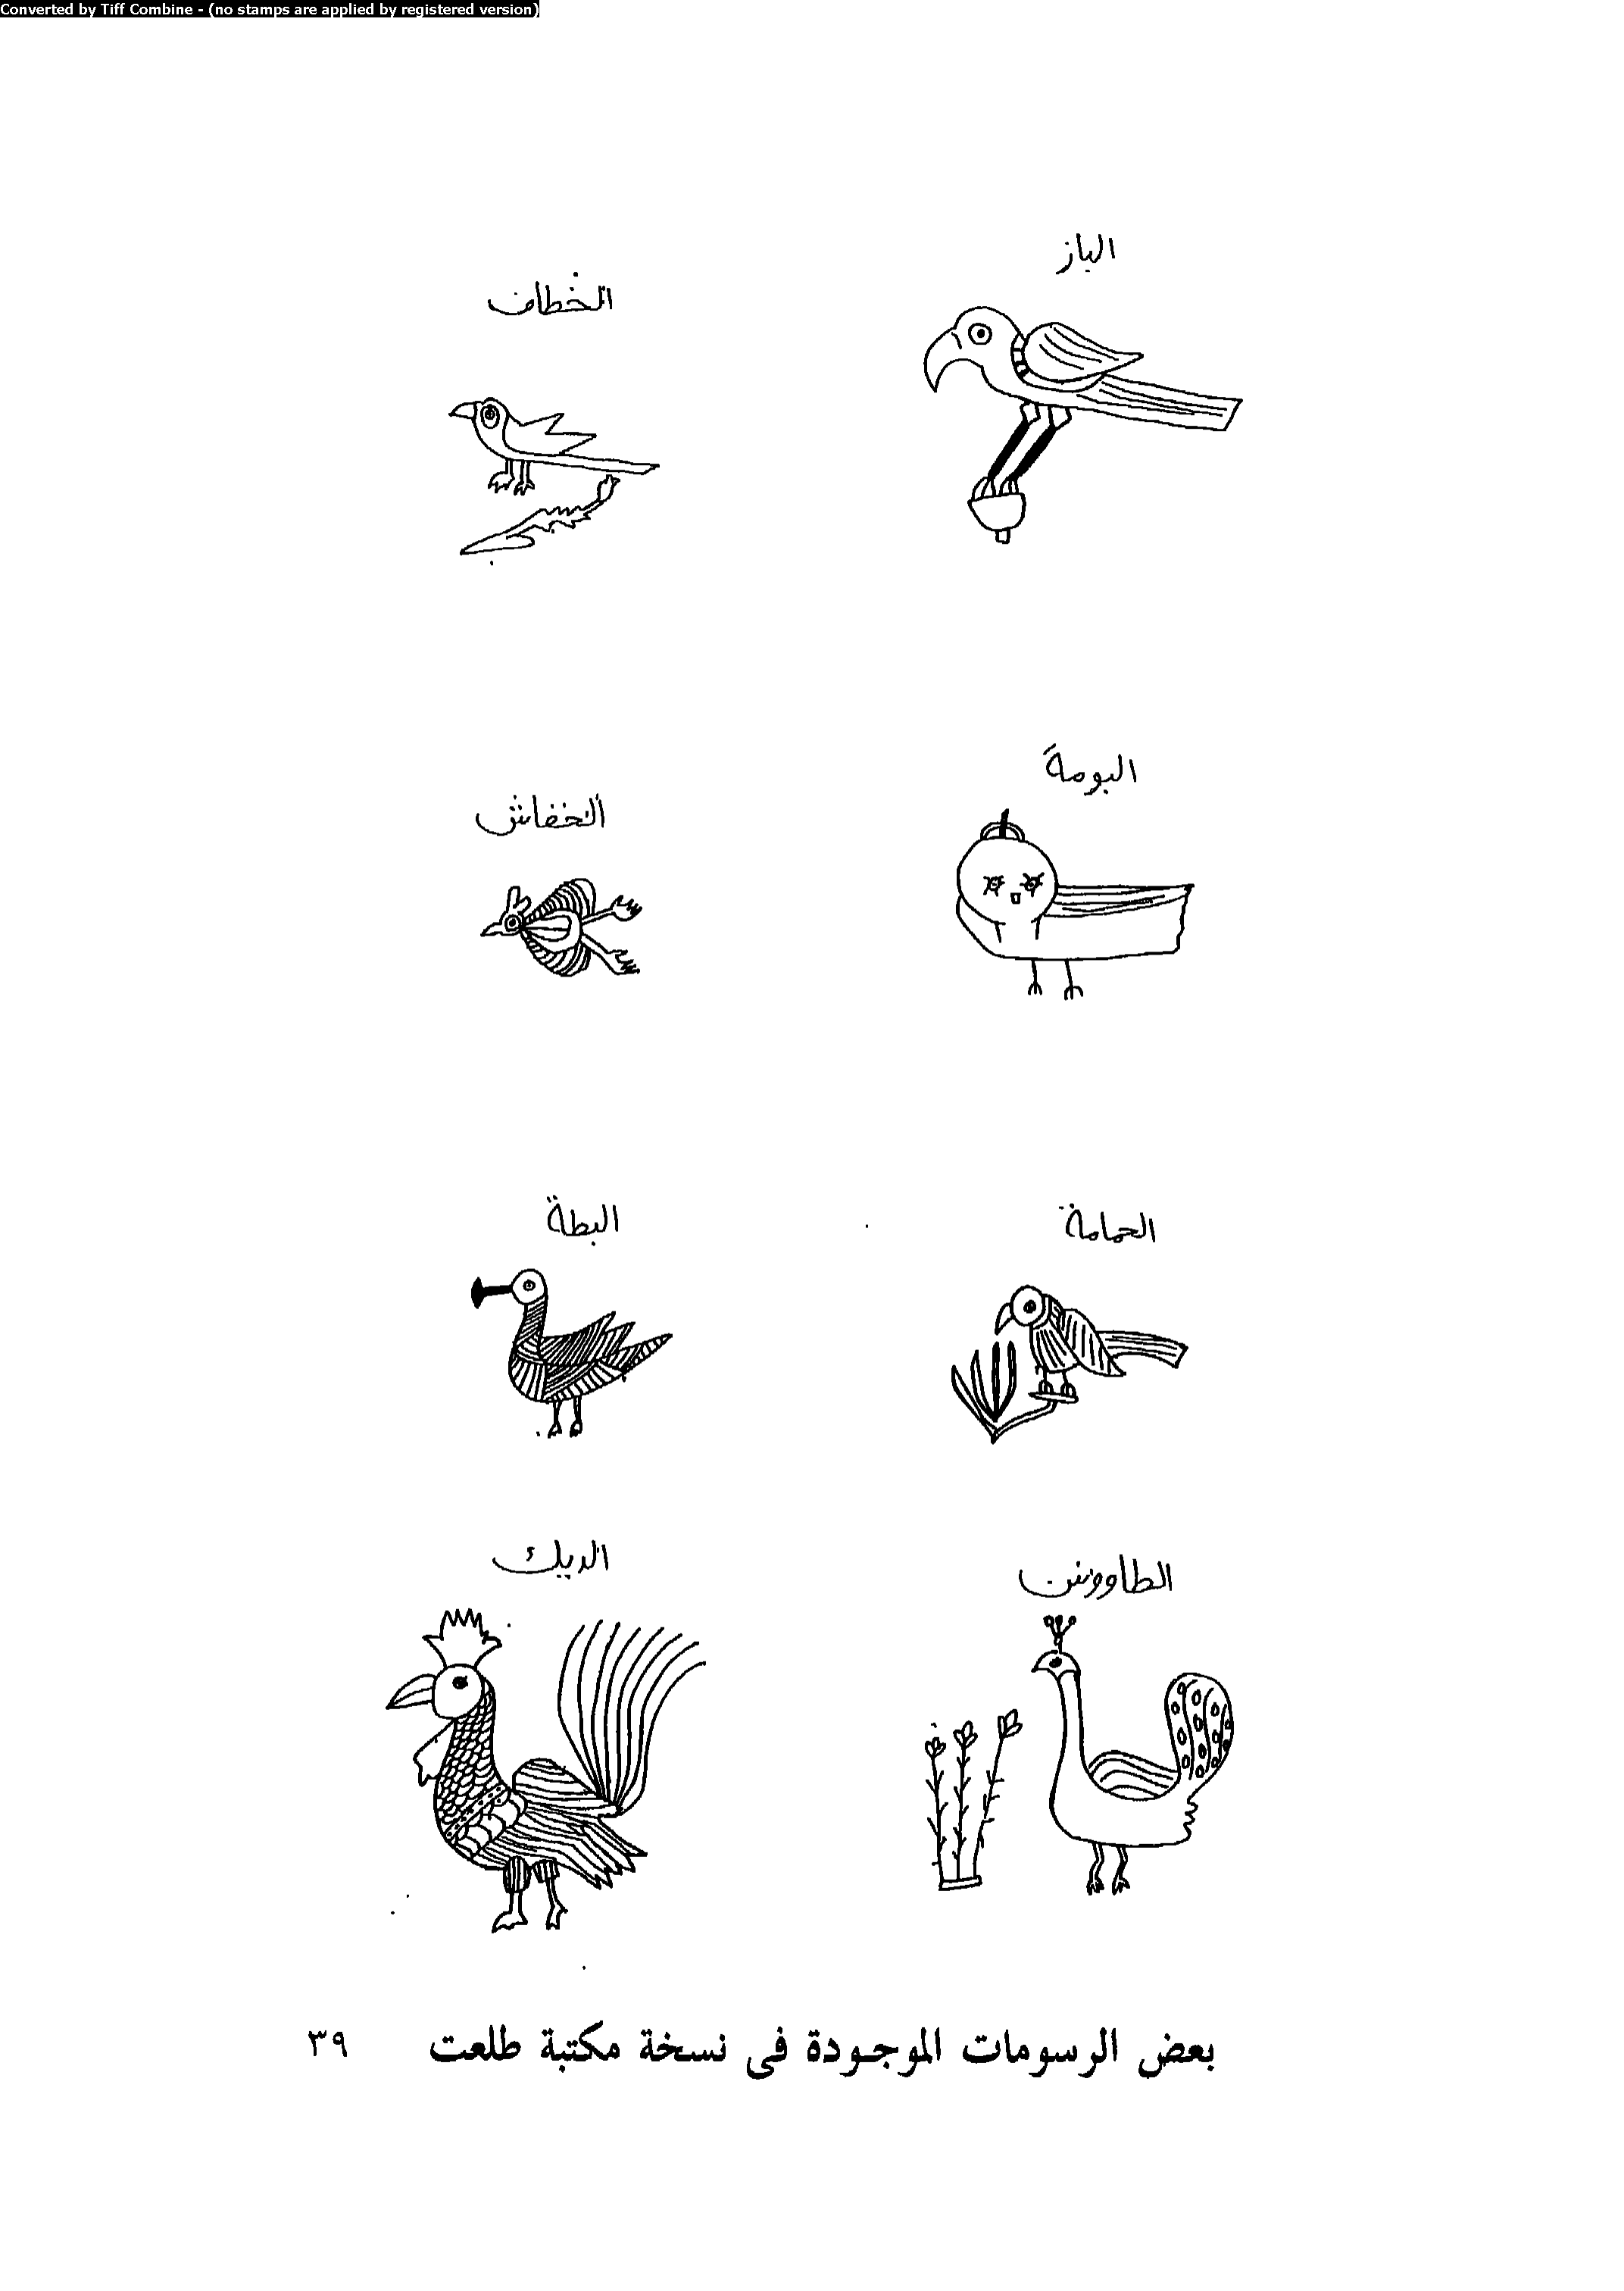 Converted by Tiff Combine - (no stamps are applied by registered version)
الباز
الخطاف
البومة
الخفاش
الحمامة
البطة
الطاووس
الديك
بعض الرسومات الموجودة فى نسخة مكتبة طلعت
٣٩